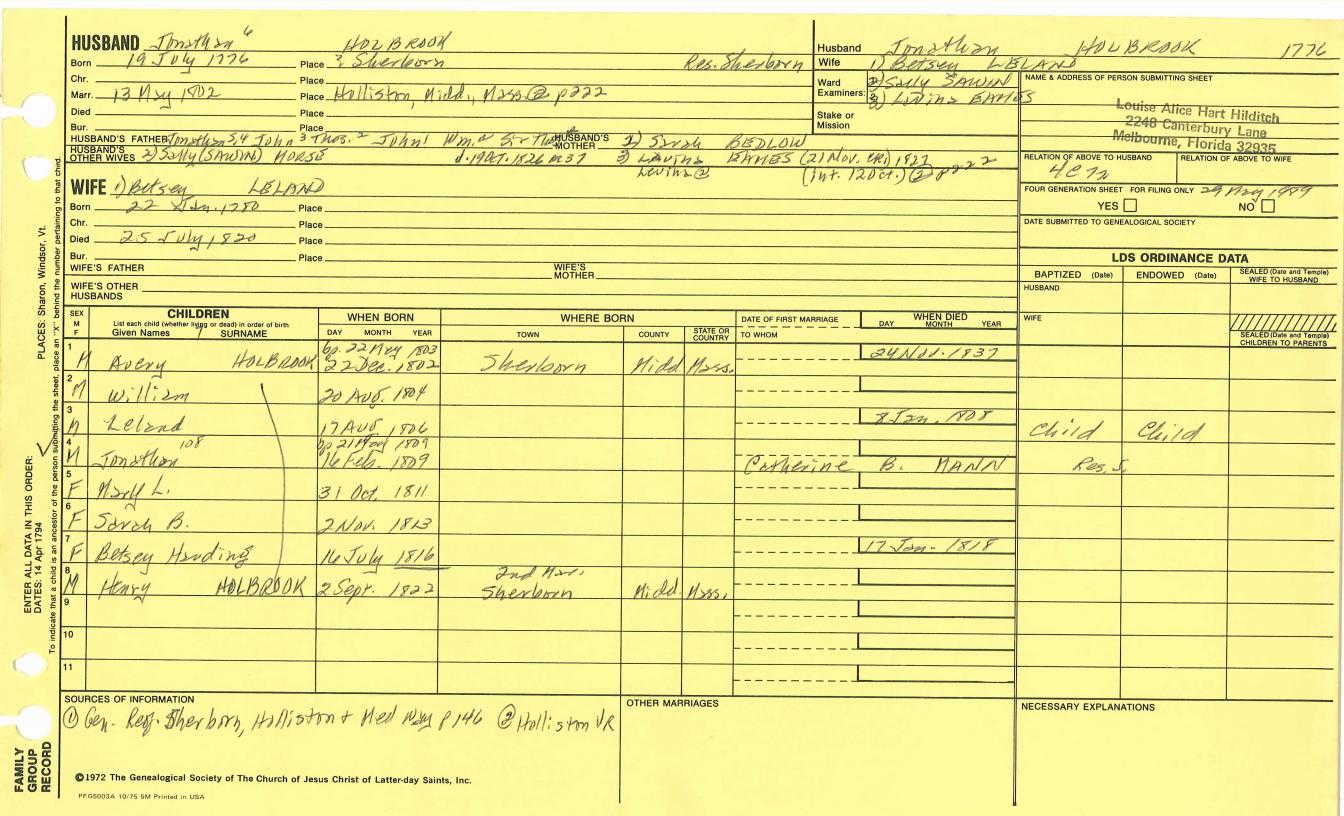 HUSBAND Jonathan 6 HOLBROOK
Born 19 July 1776 Place ? Sherborn Res. Sherborn
Chr. Place
Marr. 13 May 1802 Place Holliston, Midd., Mass. ② p222
Died Place
Bur. Place
HUSBAND'S FATHER Jonathan 5 4 John 3 Thos. 2 John 1 Wm. HUSBAND'S MOTHER Sarah BEDLOW
HUSBAND'S OTHER WIVES 2) Sally (SAWIN) MORSE d. 19 Oct. 1826 3) LAVINA EAMES (21 Nov. 1827
Levina ② (int. 12 Oct.) ② p222
WIFE 1) Betsey LELAND
Born 22 Jan. 1780 Place
Chr. Place
Died 25 July 1820 Place
Bur. Place
WIFE'S FATHER WIFE'S MOTHER
WIFE'S OTHER HUSBANDS
Husband Jonathan HOLBROOK 1776
Wife 1) Betsey LELAND
Ward Examiners: 2) Sally SAWIN
3) Lavina EAMES
Stake or Mission
NAME & ADDRESS OF PERSON SUBMITTING SHEET
Louise Alice Hart Hilditch
2248 Canterbury Lane
Melbourne, Florida 32935
RELATION OF ABOVE TO HUSBAND RELATION OF ABOVE TO WIFE
4C7R
FOUR GENERATION SHEET FOR FILING ONLY 29 May 1989
YES NO
DATE SUBMITTED TO GENEALOGICAL SOCIETY
LDS ORDINANCE DATA
BAPTIZED (Date) ENDOWED (Date) SEALED (Date and Temple) WIFE TO HUSBAND
HUSBAND
WIFE
SEALED (Date and Temple) CHILDREN TO PARENTS
SEX M F CHILDREN WHEN BORN WHERE BORN DATE OF FIRST MARRIAGE WHEN DIED
List each child (whether living or dead) in order of birth
Given Names SURNAME DAY MONTH YEAR TOWN COUNTY STATE OR COUNTRY TO WHOM DAY MONTH YEAR
bp. 22 May 1803 24 Nov. 1837
1 M Avery HOLBROOK 22 Dec. 1802 Sherborn Midd. Mass.
2 M William 20 Aug. 1804
3 M Leland 17 Aug 1806 8 Jan. 1808 Child Child
bp 21 May 1809
4 M Jonathan 108 16 Feb. 1809 Catherine B. MANN Res. S.
5 F Mary L. 31 Oct. 1811
6 F Sarah B. 2 Nov. 1813
7 F Betsey Harding 16 July 1816 17 Jan. 1818
2nd Mar.
8 M Henry HOLBROOK 2 Sept. 1822 Sherborn Midd. Mass.
9
10
11
SOURCES OF INFORMATION
① Gen. Reg. Sherborn, Holliston + Medway p 146 ② Holliston VR
OTHER MARRIAGES
NECESSARY EXPLANATIONS
©1972 The Genealogical Society of The Church of Jesus Christ of Latter-day Saints, Inc.
PFGS003A 10/75 5M Printed in USA
FAMILY GROUP RECORD
ENTER ALL DATA IN THIS ORDER:
DATES: 14 Apr 1794 PLACES: Sharon, Windsor, Vt.
To indicate that a child is an ancestor of the person submitting the sheet, place an "X" behind the number pertaining to that child.